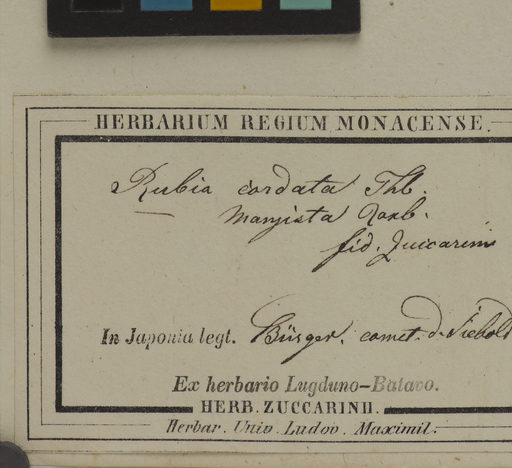 HERBARIUM REGIUM MONACENSE.
Rubia cordata Thb.
Manjista Roxb.
fid. Zuccarini
In Japonia legt. Bürger. comet. d. Siebold
Ex herbario Lugduno-Batavo.
HERB. ZUCCARINII.
Herbar. Univ. Ludov. Maximil.